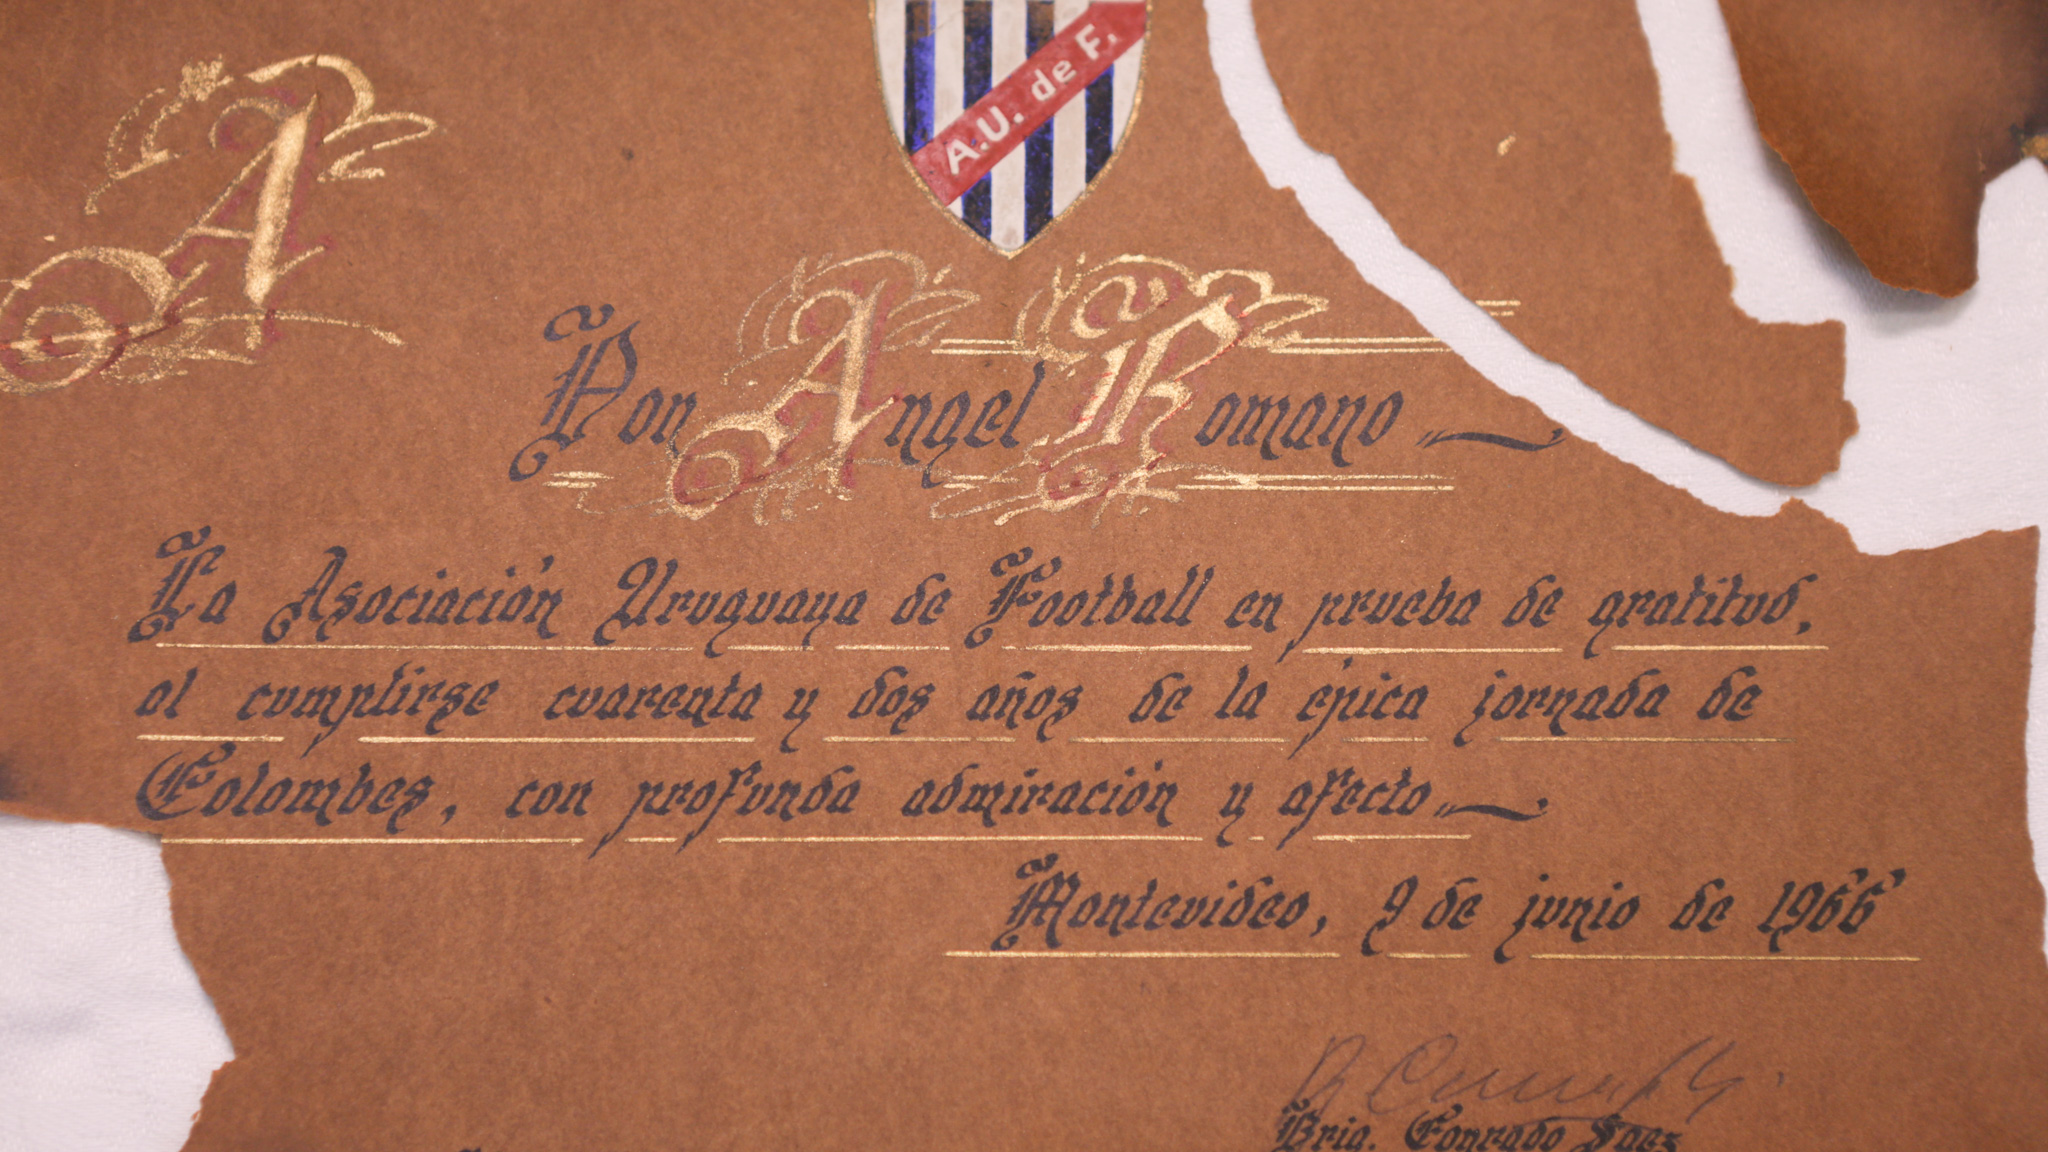 A.U. de F.
A
Don Angel Romano
La Asociación Uruguaya de Football en prueba de gratitud,
al cumplirse cuarenta y dos años de la épica jornada de
Colombes, con profunda admiración y afecto
Montevideo, 9 de junio de 1966
Brig. Conrado Saez